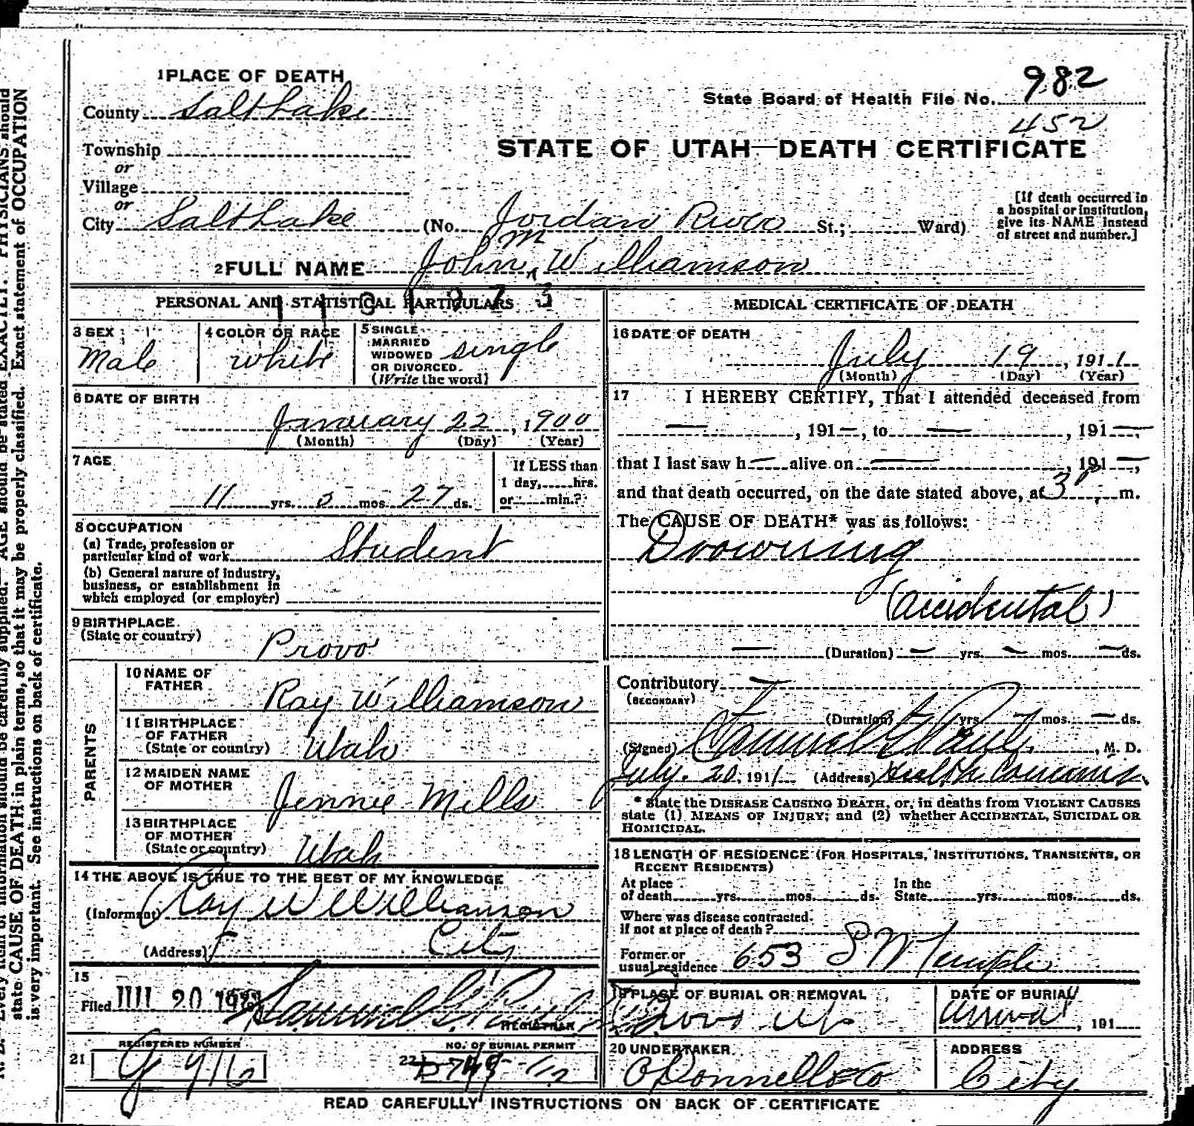 1 PLACE OF DEATH
County Salt Lake
State Board of Health File No. 982
452
Township
or
Village
or
STATE OF UTAH—DEATH CERTIFICATE
City Salt Lake (No. Jordan River St.; Ward)
[If death occurred in
a hospital or institution,
give its NAME instead
of street and number.]
2 FULL NAME John M Williamson
PERSONAL AND STATISTICAL PARTICULARS
3 SEX
Male
4 COLOR OR RACE
White
5 SINGLE
MARRIED
WIDOWED
OR DIVORCED.
(Write the word)
single
6 DATE OF BIRTH
January 22, 1900
(Month) (Day) (Year)
7 AGE
11 yrs. 5 mos. 27 ds.
If LESS than
1 day, hrs.
or min.?
8 OCCUPATION
(a) Trade, profession or
particular kind of work Student
(b) General nature of industry,
business, or establishment in
which employed (or employer)
9 BIRTHPLACE
(State or country) Provo
PARENTS
10 NAME OF
FATHER Ray Williamson
11 BIRTHPLACE
OF FATHER
(State or country) Utah
12 MAIDEN NAME
OF MOTHER Jennie Mills
13 BIRTHPLACE
OF MOTHER
(State or country) Utah
14 THE ABOVE IS TRUE TO THE BEST OF MY KNOWLEDGE
(Informant) Ray W Williamson
(Address) City
15
Filed JUL 20 1911 Samuel G. Paul
REGISTRAR
REGISTERED NUMBER
21
NO. OF BURIAL PERMIT
22
MEDICAL CERTIFICATE OF DEATH
16 DATE OF DEATH
July 19, 1911
(Month) (Day) (Year)
17 I HEREBY CERTIFY, That I attended deceased from
—, 191—, to —, 191—,
that I last saw h— alive on —, 191—,
and that death occurred, on the date stated above, at 3 P. m.
The CAUSE OF DEATH* was as follows:
Drowning
(accidental)
— (Duration) — yrs. — mos. — ds.
Contributory —
(SECONDARY)
(Duration) yrs. mos. — ds.
(Signed) Samuel G. Paul, M. D.
July 20, 1911 (Address) Health Commis.
* State the DISEASE CAUSING DEATH, or, in deaths from VIOLENT CAUSES
state (1) MEANS OF INJURY; and (2) whether ACCIDENTAL, SUICIDAL OR
HOMICIDAL.
18 LENGTH OF RESIDENCE (FOR HOSPITALS, INSTITUTIONS, TRANSIENTS, OR
RECENT RESIDENTS)
At place
of death yrs. mos. ds.
In the
State yrs. mos. ds.
Where was disease contracted
if not at place of death?
Former or
usual residence 653 S W Temple
19 PLACE OF BURIAL OR REMOVAL
Provo Ut
DATE OF BURIAL
arrival, 191
20 UNDERTAKER
O'Donnell & Co
ADDRESS
City
READ CAREFULLY INSTRUCTIONS ON BACK OF CERTIFICATE